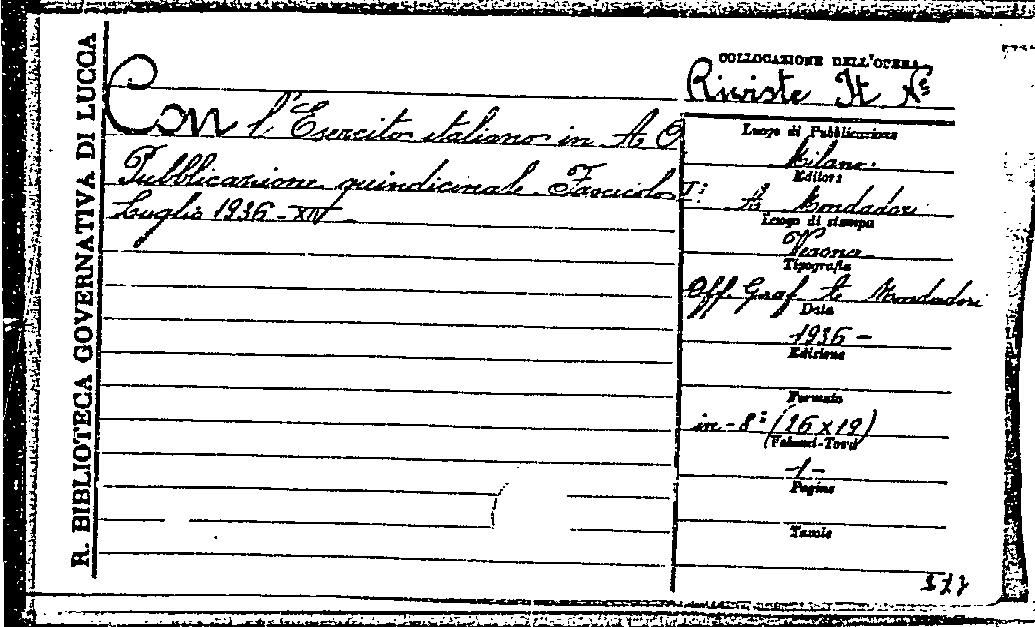 R. BIBLIOTECA GOVERNATIVA DI LUCCA
Con l'Esercito italiano in A O
Pubblicazione quindicinale. Fascicolo I:
Luglio 1936-XIV-
COLLOCAZIONE DELL'OPERA
Riviste It
Luogo di Pubblicazione
Milano.
Editore
A Mondadori
Luogo di stampa
Verona-
Tipografia
Off. Graf. Mondadori
Data
1936-
Edizione
Formato
in-8: (26x19)
(Volumi-Tomi)
1-
Pagine
Tavole